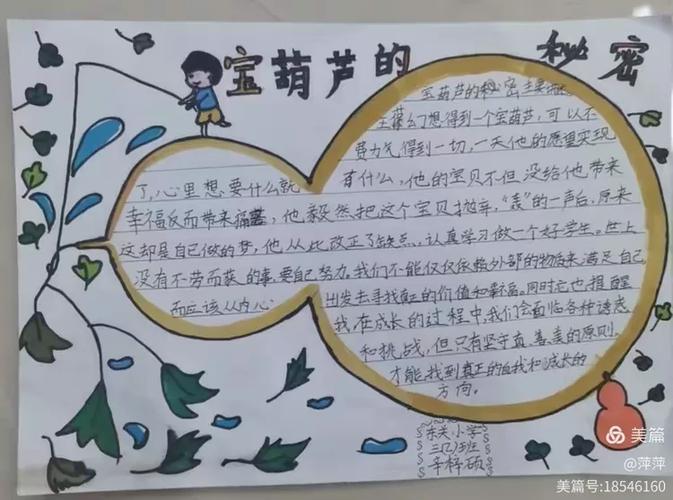 宝葫芦的秘密
宝葫芦的秘密主要
王葆幻想得到一个宝葫芦,可以不
费力气得到一切,一天他的愿望实现
了,心里想要什么就有什么,他的宝贝不但没给他带来
幸福反而带来痛苦,他毅然把这个宝贝抛弃,"轰"的一声后,原来
这却是自己做的梦,他从此改正了缺点,认真学习做一个好学生。世上
没有不劳而获的事,要自己努力,我们不能仅仅依赖外部的物质来满足自己
而应该从内心出发去寻找真正的价值和幸福。同时它也提醒
我,在成长的过程中,我们会面临各种诱惑
和挑战,但只有坚守真、善、美的原则,
才能找到真正的自我和成长的
方向。
东关小学
三(2)班
辛梓硕
美篇
@萍萍
美篇号:18546160